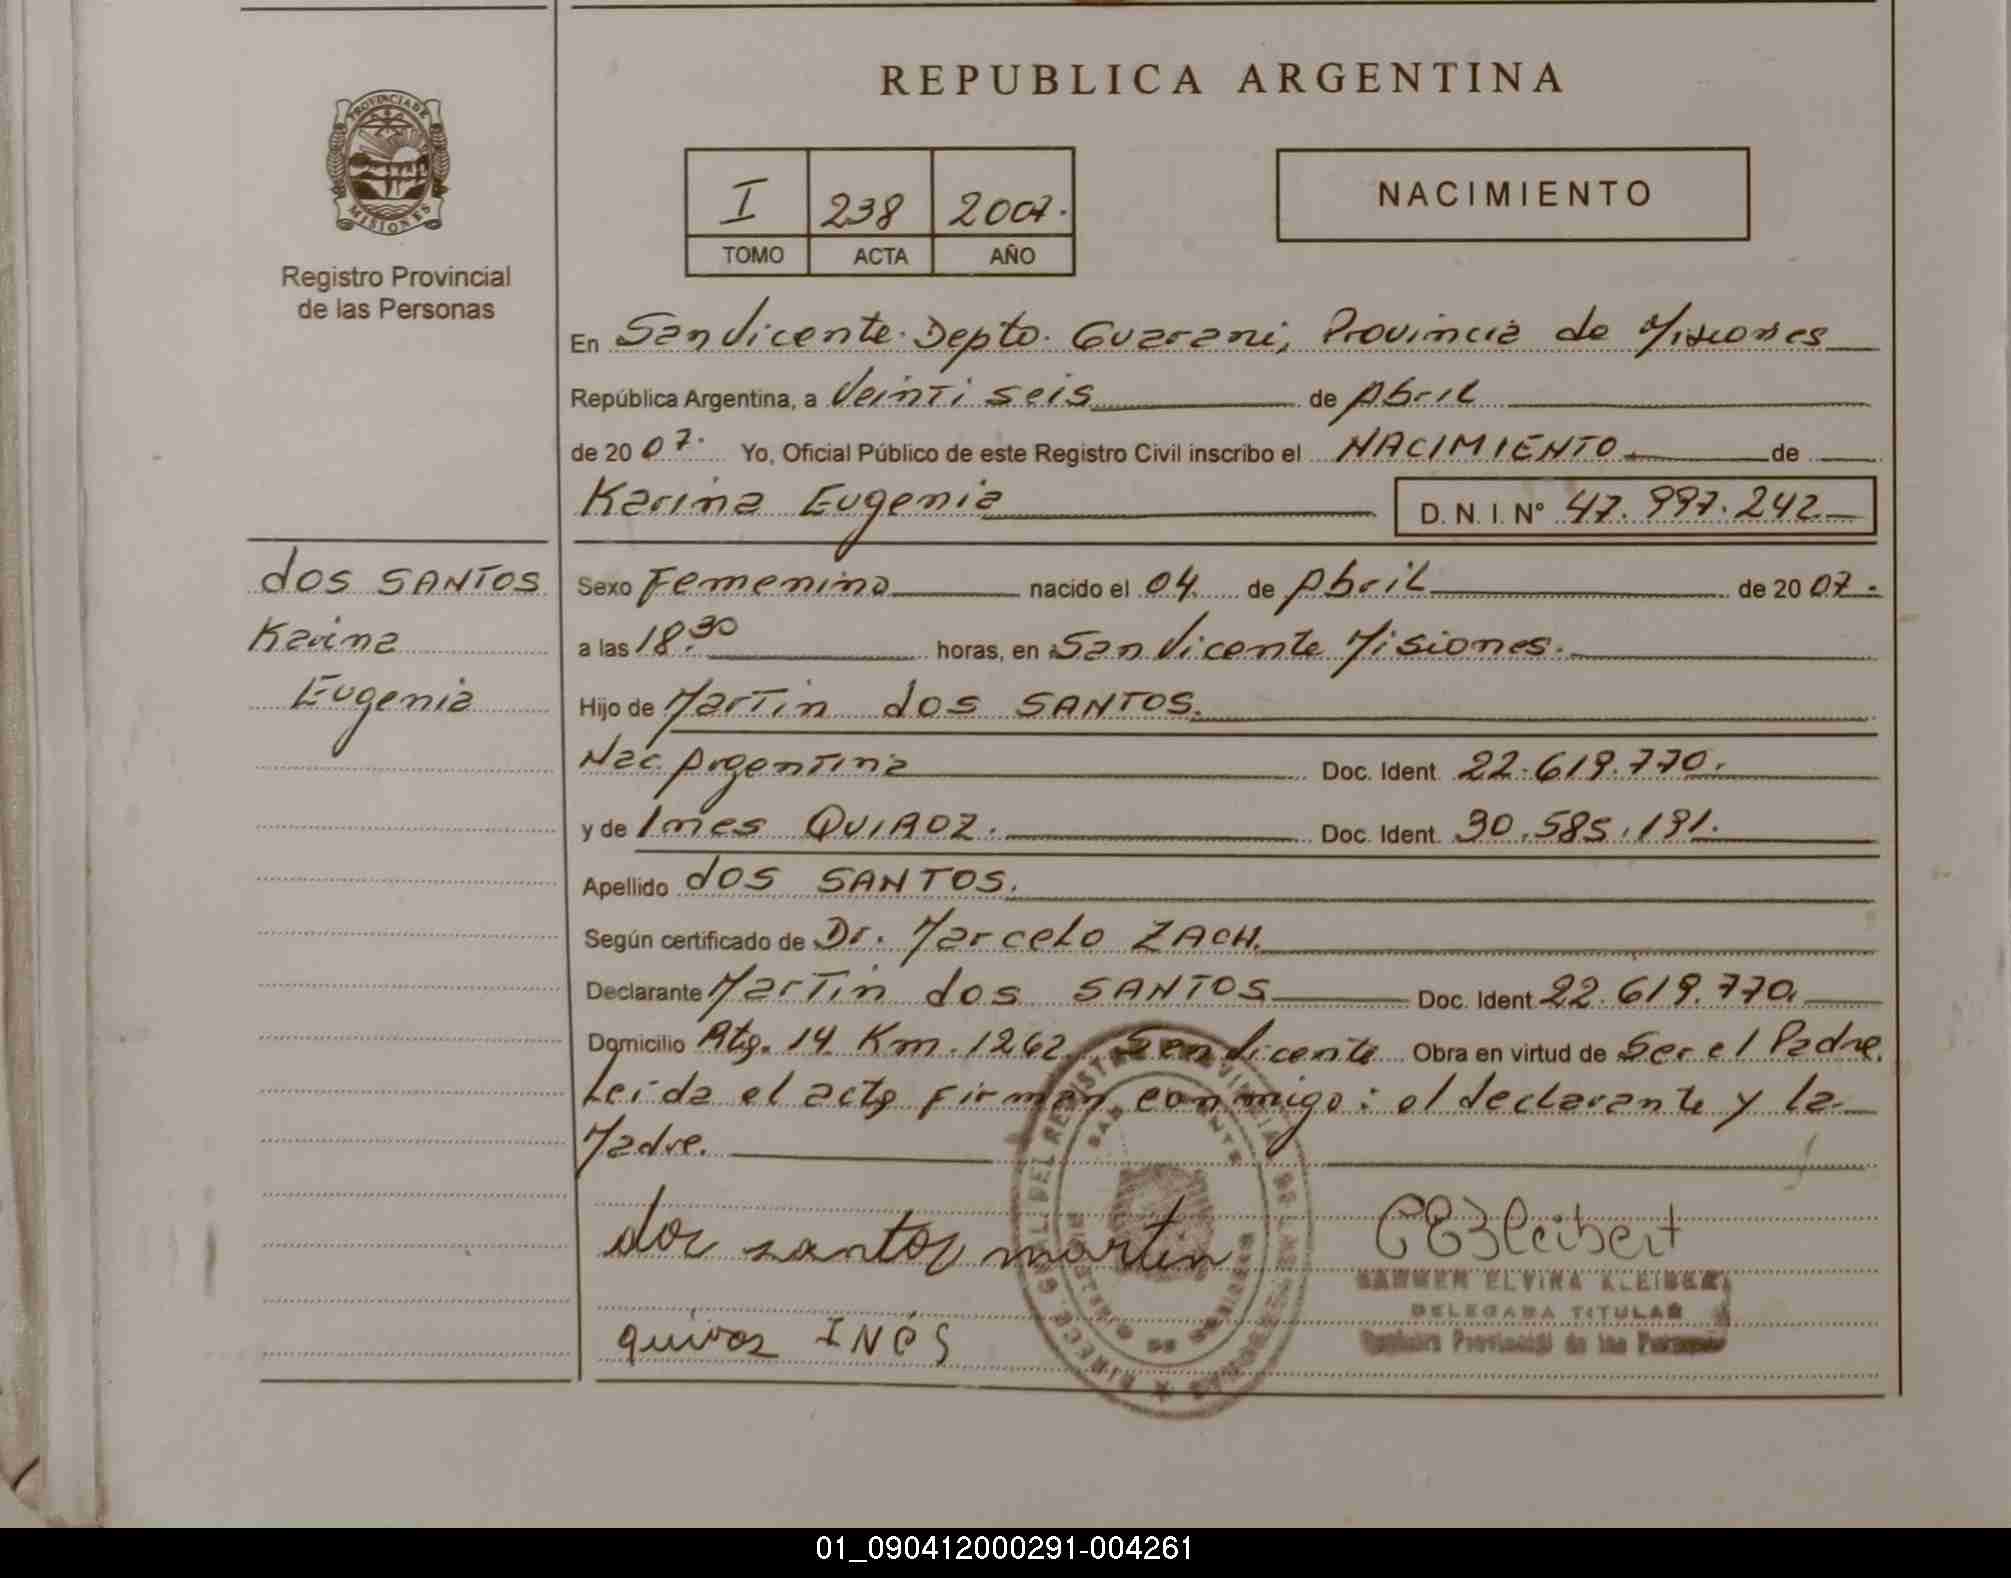 REPUBLICA ARGENTINA
PROVINCIA DE MISIONES
Registro Provincial
de las Personas
I 238 2007.
TOMO ACTA AÑO
NACIMIENTO
En San Vicente. Depto. Guarani, Provincia de Misiones
República Argentina, a Veinti seis de Abril
de 2007. Yo, Oficial Público de este Registro Civil inscribo el NACIMIENTO de
Karina Eugenia D. N. I. Nº 47.997.242
dos SANTOS
Karina
Eugenia
Sexo Femenino nacido el 04 de Abril de 2007.
a las 18.30 horas, en San Vicente Misiones.
Hijo de Martin dos SANTOS.
Nac. Argentina Doc. Ident. 22.619.770.
y de Ines QUIROZ. Doc. Ident. 30.585.191.
Apellido dos SANTOS.
Según certificado de Dr. Marcelo ZACH.
Declarante Martin dos SANTOS Doc. Ident. 22.619.770.
Domicilio Rta. 14 Km. 1262. San Vicente Obra en virtud de Ser el Padre.
Leida el acta firman conmigo: el declarante y la
Madre.
dos santos martin
quiroz INÉS
CEKleibert
CARMEN ELVIRA KLEIBERT
DELEGADA TITULAR
Registro Provincial de las Personas
01_090412000291-004261